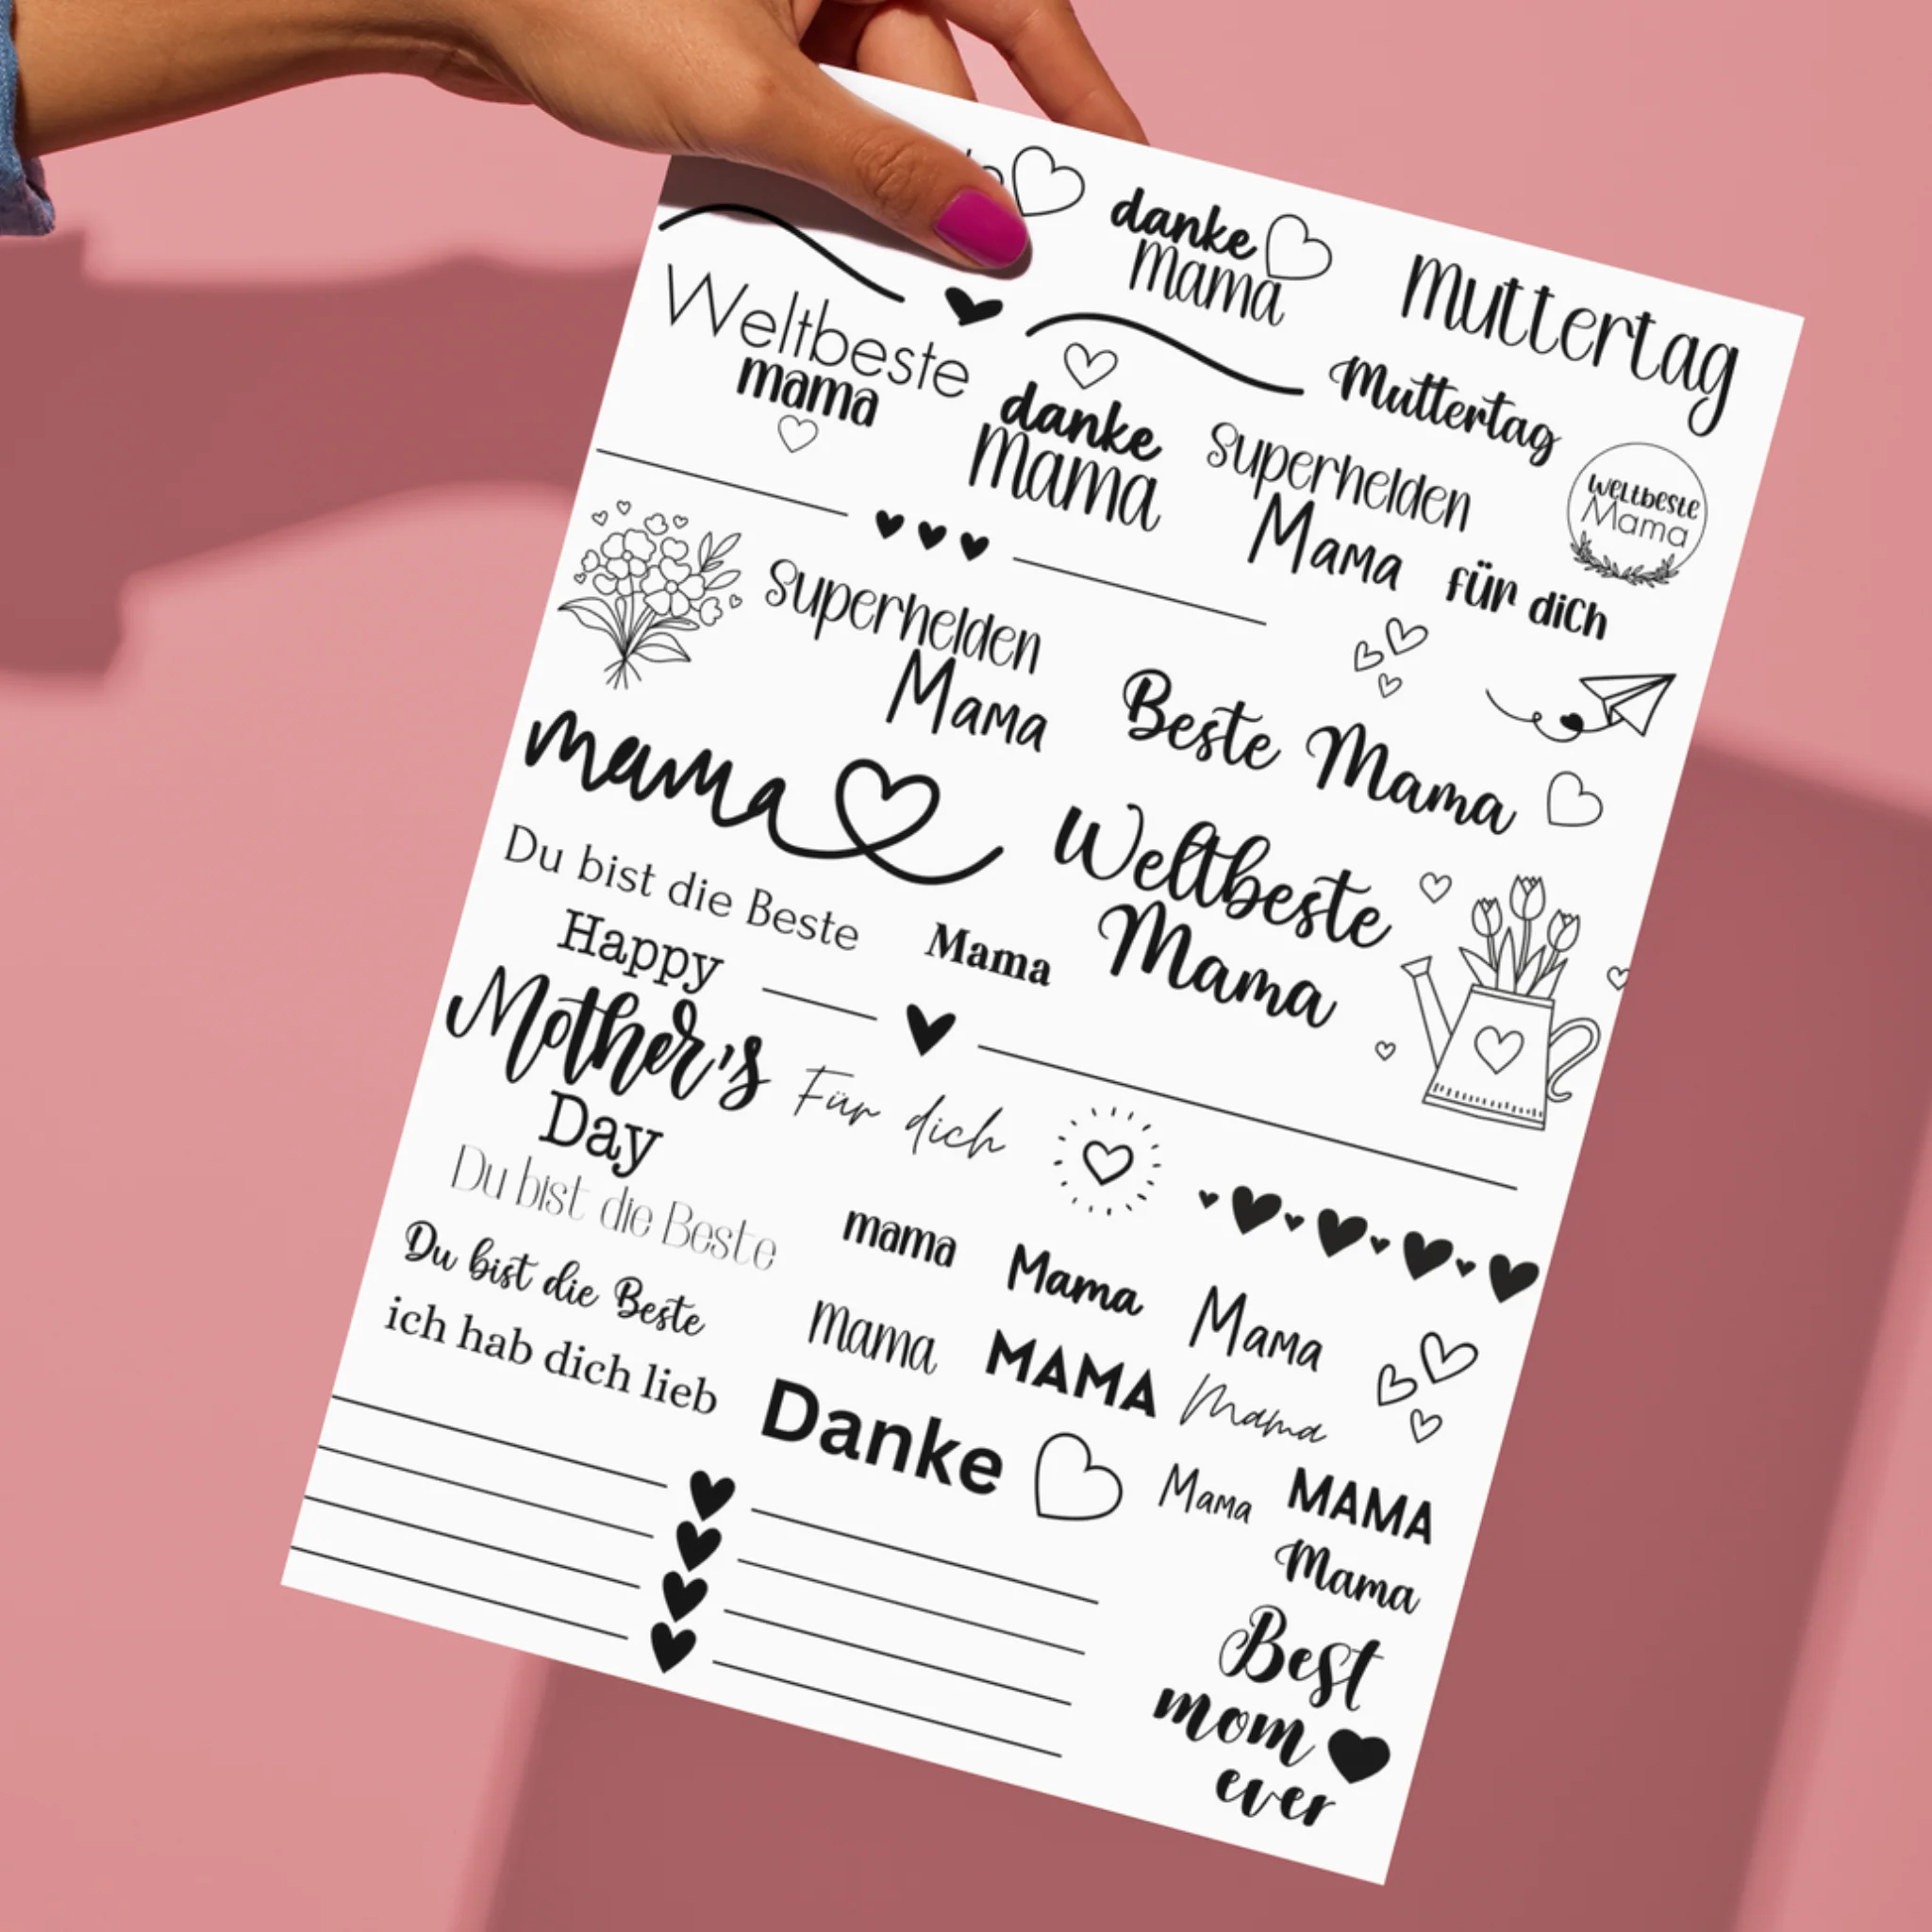 danke
Mama
Muttertag
Weltbeste
mama
danke
Mama
Muttertag
Superhelden
Mama
weltbeste
Mama
für dich
Superhelden
Mama
Beste Mama
mama
Weltbeste
Mama
Du bist die Beste
Mama
Happy
Mother's
Day
Für dich
Du bist die Beste
mama
Mama
Mama
Du bist die Beste
mama
MAMA
Mama
ich hab dich lieb
Danke
Mama
MAMA
Mama
Best
mom
ever